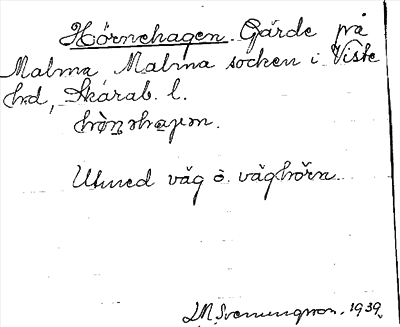 Hörnehagen. Gärde på
Malma, Malma socken i Viste
hd, Skarab. l.
Utmed väg o. väghörn.
1939.